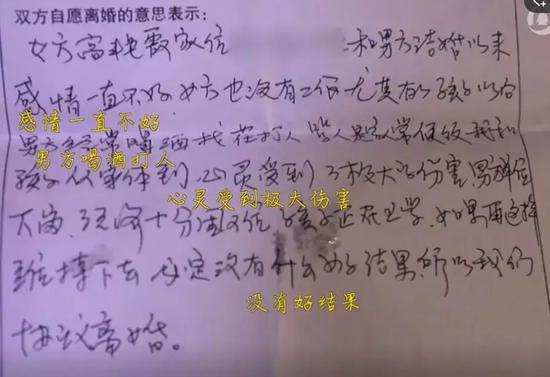 双方自愿离婚的意思表示:
女方 家住 和男方结婚以来
感情一直不好,女方也没有工作尤其有了孩子以后
感情一直不好
男方经常喝酒 在打人骂人是家常便饭我和
男方喝酒打人
孩子从身体到心灵受到了极大的伤害,男 单位
心灵受到极大伤害
下岗,经济十分困 孩子正在上学,如果再这样
维持下去肯定没有什么好结果所以我们
没有好结果
协议离婚。